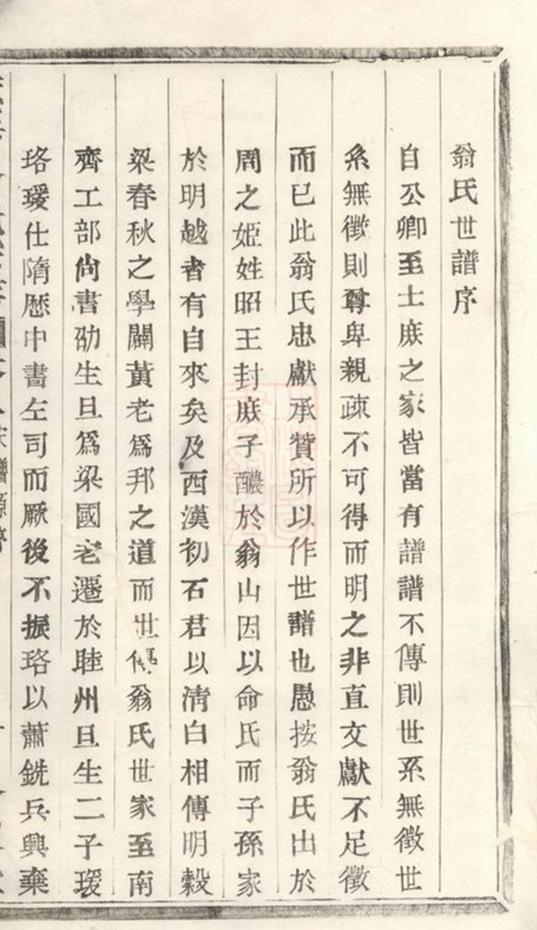 翁氏世譜序
自公卿至士庶之家皆當有譜譜不傳則世系無徵世
系無徵則尊卑親疎不可得而明之非直文獻不足徵
而已此翁氏忠獻承贊所以作世譜也愚按翁氏出於
周之姬姓昭王封庶子醲於翁山因以命氏而子孫家
於明越者有自來矣及西漢初石君以清白相傳明穀
梁春秋之學闢黃老爲邦之道而世偁翁氏世家至南
齊工部尚書劭生旦爲梁國老遷於睦州旦生二子瑗
珞瑗仕隋歷中書左司而厥後不振珞以蕭銑兵興棄